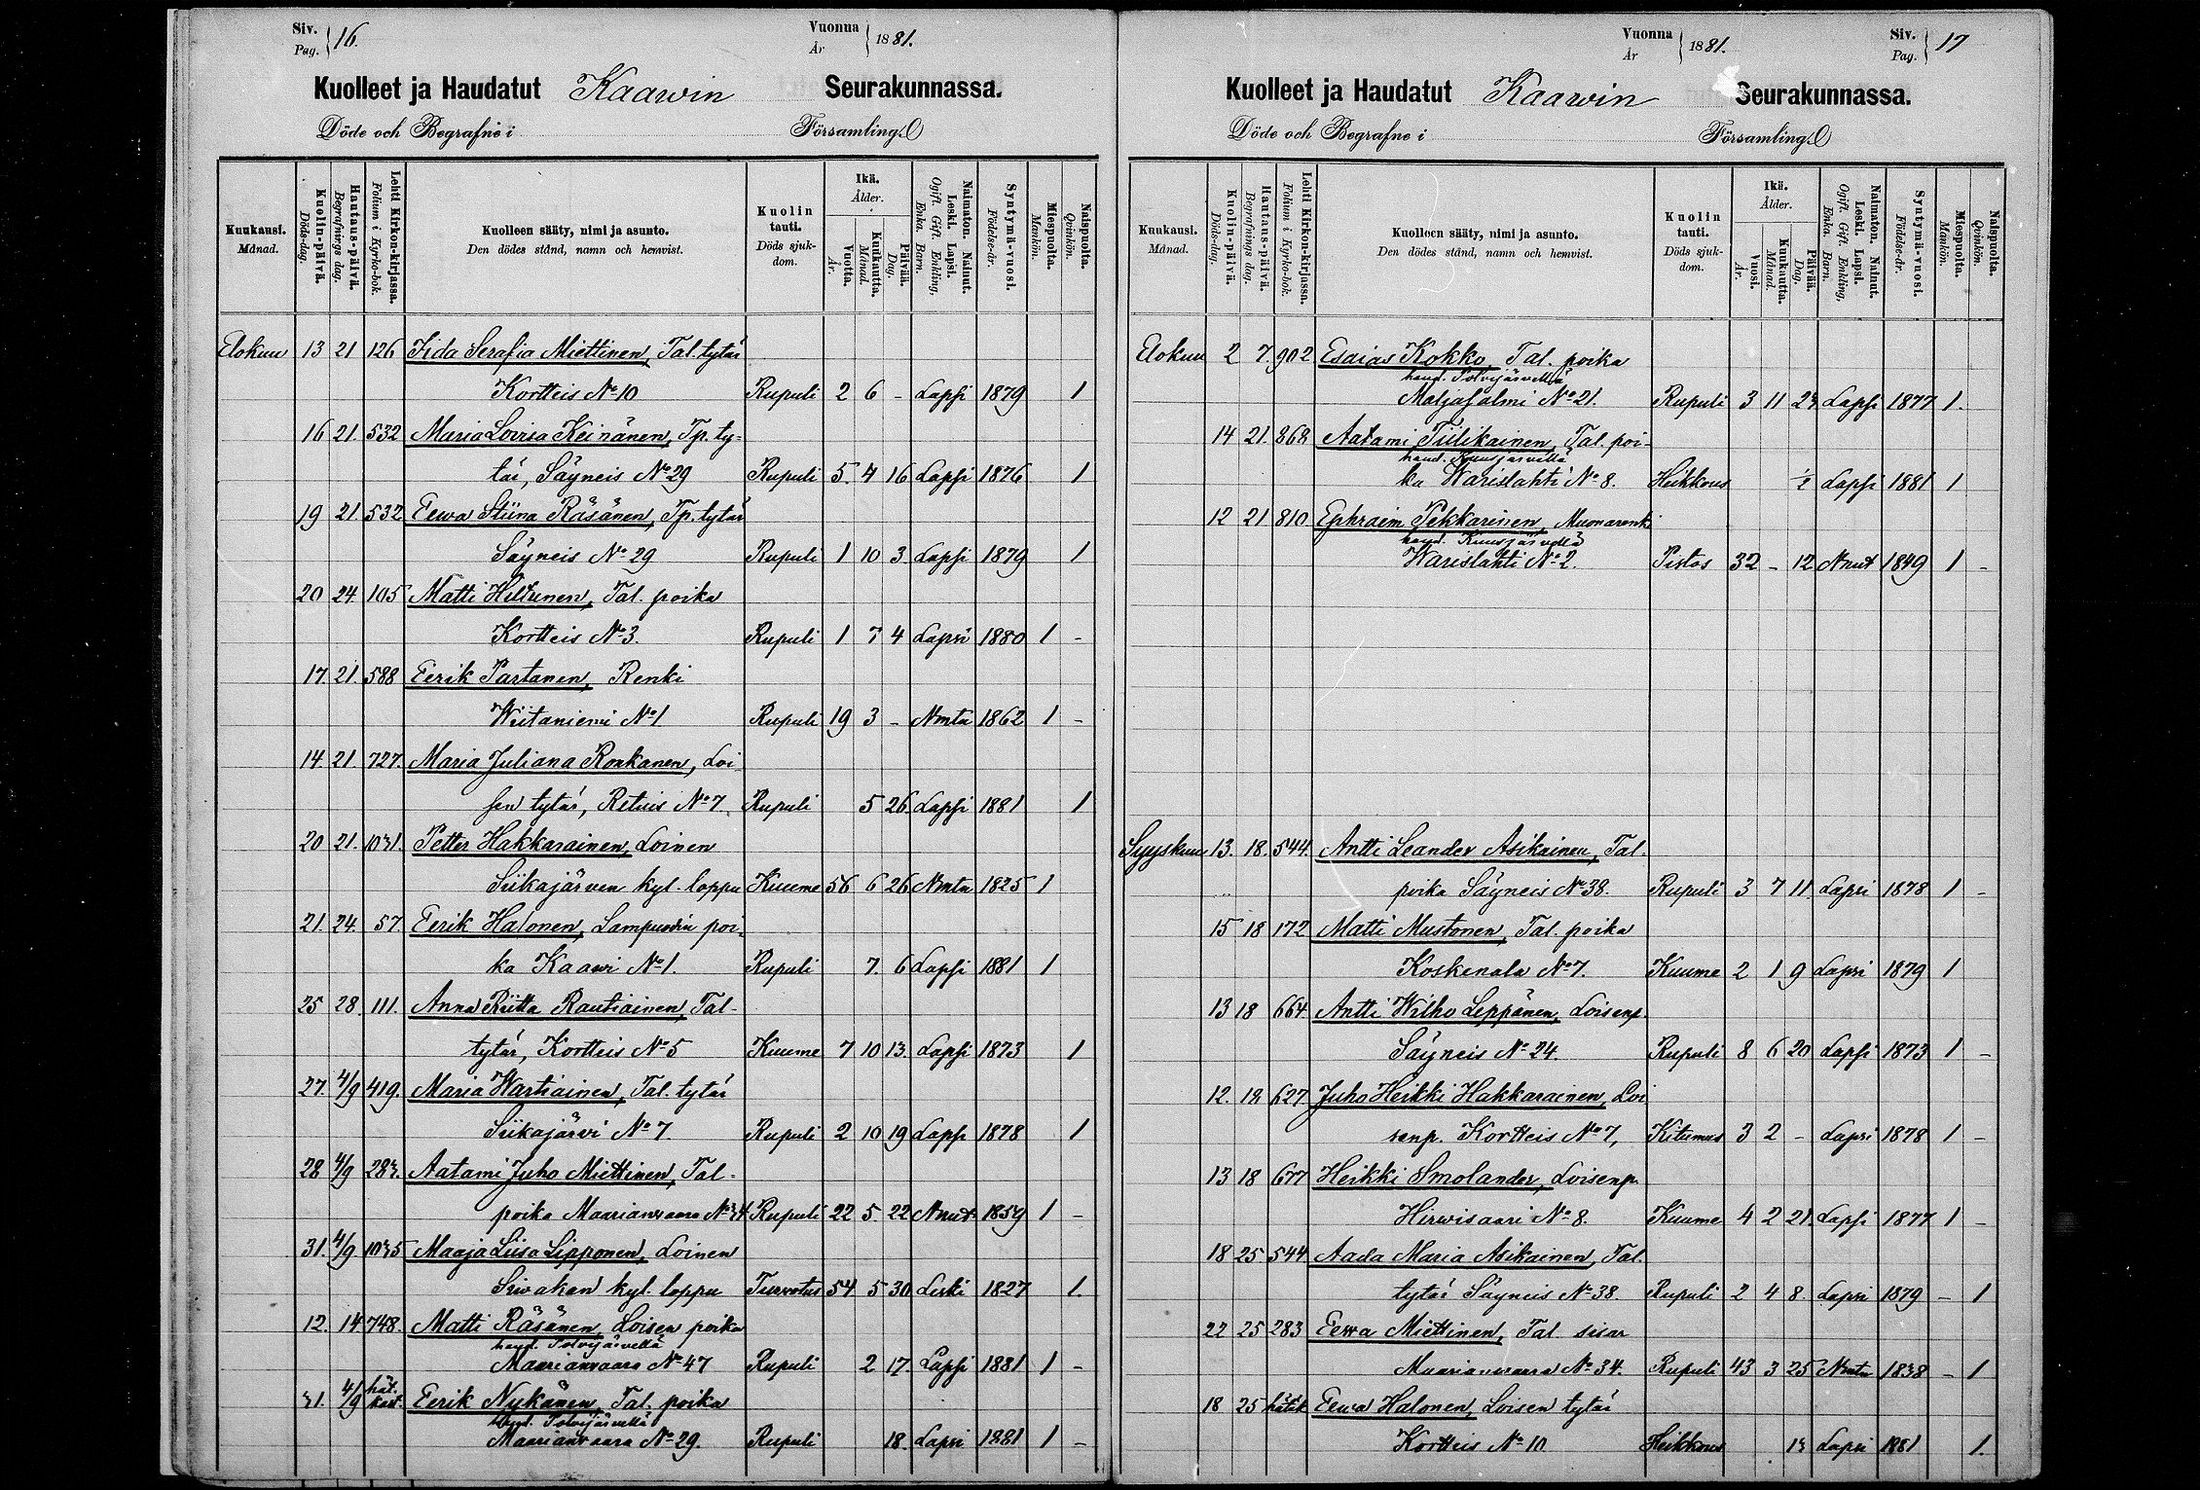 Siv.
Pag. 16.
Vuonna
År 1881.
Kuolleet ja Haudatut Kaawin Seurakunnassa.
Döde och Begrafne i Församling.
Kuukausi.
Månad.
Kuolin-päivä.
Döds-dag.
Hautaus-päivä.
Begrafnings dag.
Lehti Kirkon-kirjassa.
Folium i Kyrko-bok.
Kuolleen sääty, nimi ja asunto.
Den dödes stånd, namn och hemvist.
Kuolin
tauti.
Döds sjuk-
dom.
Ikä.
Ålder.
Vuotta.
År.
Kuukautta.
Månad.
Päivää.
Dag.
Naimaton. Nainut.
Leski. Lapsi.
Ogift. Gift. Enkling,
Enka. Barn.
Syntymä-vuosi.
Födelse-år.
Miespuolta.
Mankön.
Naispuolta.
Qvinkön.
Elokuu 13 21 126 Iida Serafia Miettinen, Tal. tytär
Kortteis No 10 Rupuli 2 6 - Lapsi 1879 1
16 21. 532 Maria Lovisa Keinänen, Tp. ty-
tär, Säyneis No 29 Rupuli 5. 4 16 Lapsi 1876 1
19 21. 532 Eewa Stiina Räsänen, Tp. tytär
Säyneis No 29 Rupuli 1 10 3 Lapsi 1879 1
20 24 105 Matti Hiltunen, Tal. poika
Kortteis No 3. Rupuli 1 7 4 Lapsi 1880 1 -
17. 21. 588 Eerik Partanen, Renki
Wiitaniemi No 1 Rupuli 19 3 - Nmtn 1862 1 -
14. 21. 727. Maria Juliana Ronkanen, Loi-
sen tytär, Retuis No 7 Rupuli 5 26 Lapsi 1881 1
20 21. 1031. Petter Hakkarainen, Loinen
Siikajärven kyl. loppu Kuume 56 6 26 Nmtn 1825 1
21. 24. 57. Eerik Halonen, Lampuodin poi-
ka Kaawi No 1. Rupuli 7. 6 Lapsi 1881 1
25 28. 111. Anna Riitta Rautiainen, Tal-
tytär, Kortteis No 5 Kuume 7 10 13. Lapsi 1873 1
27. 4/9 419. Maria Wartiainen, Tal. tytär
Siikajärvi No 7. Rupuli 2 10 19 Lapsi 1878 1
28 4/9 283. Aatami Juho Miettinen, Tal-
poika Maarianvaara No 34 Rupuli 22 5. 22 Nnut 1859 1 -
31. 4/9 1035 Maaja Liisa Lipponen, Loinen
Siwakan kyl. loppu Turvotus 54 5 30 Leski 1827 1.
12. 14 748. Matti Räsänen, Loisen poika
haud. Polvijärvellä
Maarianvaara No 47 Rupuli 2 17. Lapsi 1881 1 -
31. 4/9 hät. kast. Eerik Nykänen, Tal. poika
haud. Polvijärvellä
Maarianvaara No 29. Rupuli 18. Lapsi 1881 1 -
Vuonna
År 1881.
Siv.
Pag. 17
Kuolleet ja Haudatut Kaawin Seurakunnassa.
Döde och Begrafne i Församling.
Kuukausi.
Månad.
Kuolin-päivä.
Döds-dag.
Hautaus-päivä.
Begrafnings dag.
Lehti Kirkon-kirjassa.
Folium i Kyrko-bok.
Kuolleen sääty, nimi ja asunto.
Den dödes stånd, namn och hemvist.
Kuolin
tauti.
Döds sjuk-
dom.
Ikä.
Ålder.
Vuosi.
År.
Kuukautta.
Månad.
Päivää.
Dag.
Naimaton. Nainut.
Leski. Lapsi.
Ogift. Gift. Enkling,
Enka. Barn.
Syntymä-vuosi.
Födelse-år.
Miespuolta.
Mankön.
Naispuolta.
Qvinkön.
Elokuu 2 7. 902 Esaias Kokko, Tal. poika
haud. Polvijärvellä
Maljasalmi No 21. Rupuli 3 11 23 Lapsi 1877 1.
14 21. 868 Aatami Tiilikainen, Tal. poi-
haud. Kuusjärvellä
ka Warislahti No 8. Heikkous 1/2 Lapsi 1881 1
12 21 810 Ephraim Pekkarinen, Muonarenki
haud. Kuusjärvellä
Warislahti No 2. Pistos 32 - 12 Nnut 1849 1 -
Syyskuu 13. 18. 544. Antti Leander Asikainen, Tal.
poika Säyneis No 38. Rupuli 3 7 11. Lapsi 1878 1 -
15 18 172 Matti Mustonen, Tal. poika
Koskenala No 7. Kuume 2 1 9 Lapsi 1879 1
13 18 664 Antti Wilho Leppänen, Loisenp.
Säyneis No 24. Rupuli 8 6 20 Lapsi 1873 1 -
12. 18 627 Juho Heikki Hakkarainen, Loi
senp. Kortteis No 7, Kitumus 3 2 - Lapsi 1878 1 -
13 18 677 Heikki Smolander, Loisenp.
Hirwisaari No 8. Kuume 4 2 21. Lapsi 1877 1 -
18 25 544 Aada Maria Asikainen, Tal.
tytär Säyneis No 38. Rupuli 2 4 8. Lapsi 1879 - 1
22 25 283 Eewa Miettinen, Tal. sisar
Maarianvaara No 34. Rupuli 43 3 25 Nmtn 1838 - 1
18 25 hätäk Eewa Halonen, Loisen tytär
Kortteis No 10 Heikkous 13 Lapsi 1881 1.